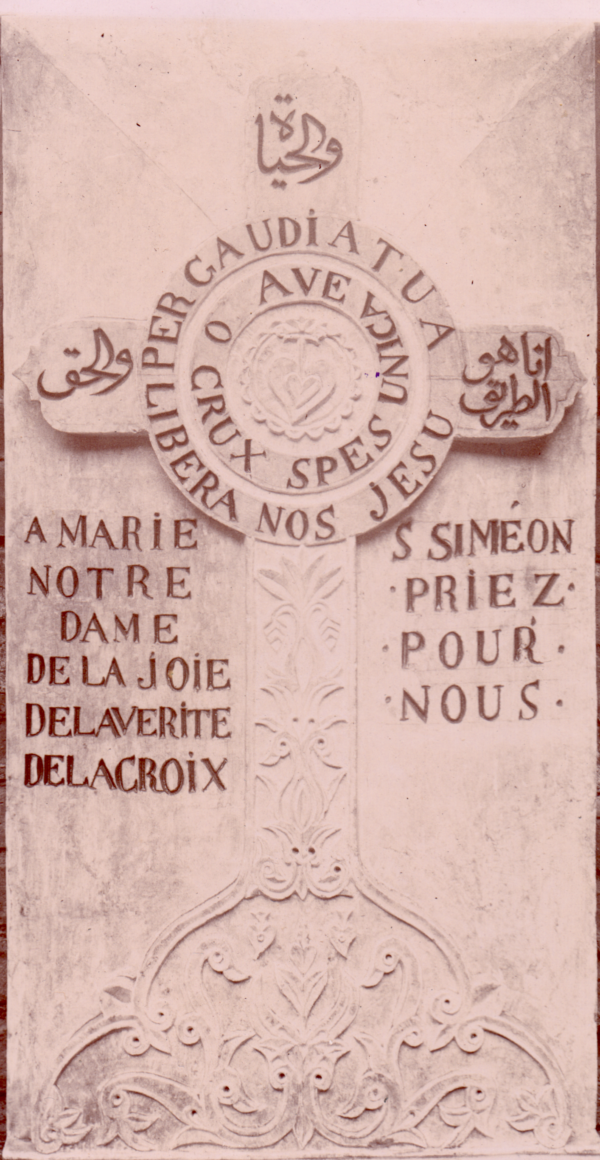 والحياة
PER GAUDIA TUA
LIBERA NOS JESU
O CRUX AVE
SPES UNICA
انا هو
الطريق
والحق
A MARIE
NOTRE
DAME
DE LA JOIE
DELAVERITE
DELACROIX
S SIMÉON
·PRIEZ·
·POUR·
·NOUS·